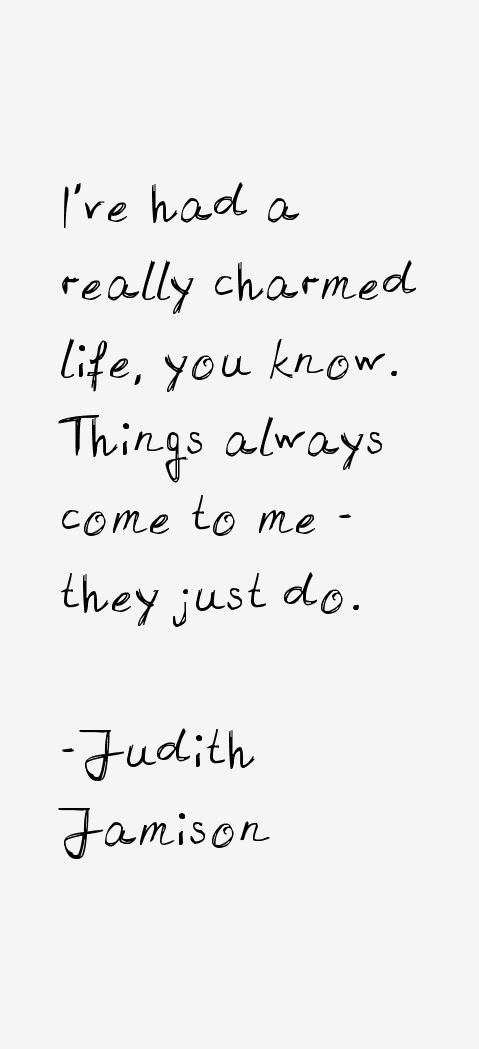 I've had a
really charmed
life, you know.
Things always
come to me -
they just do.
-Judith
Jamison